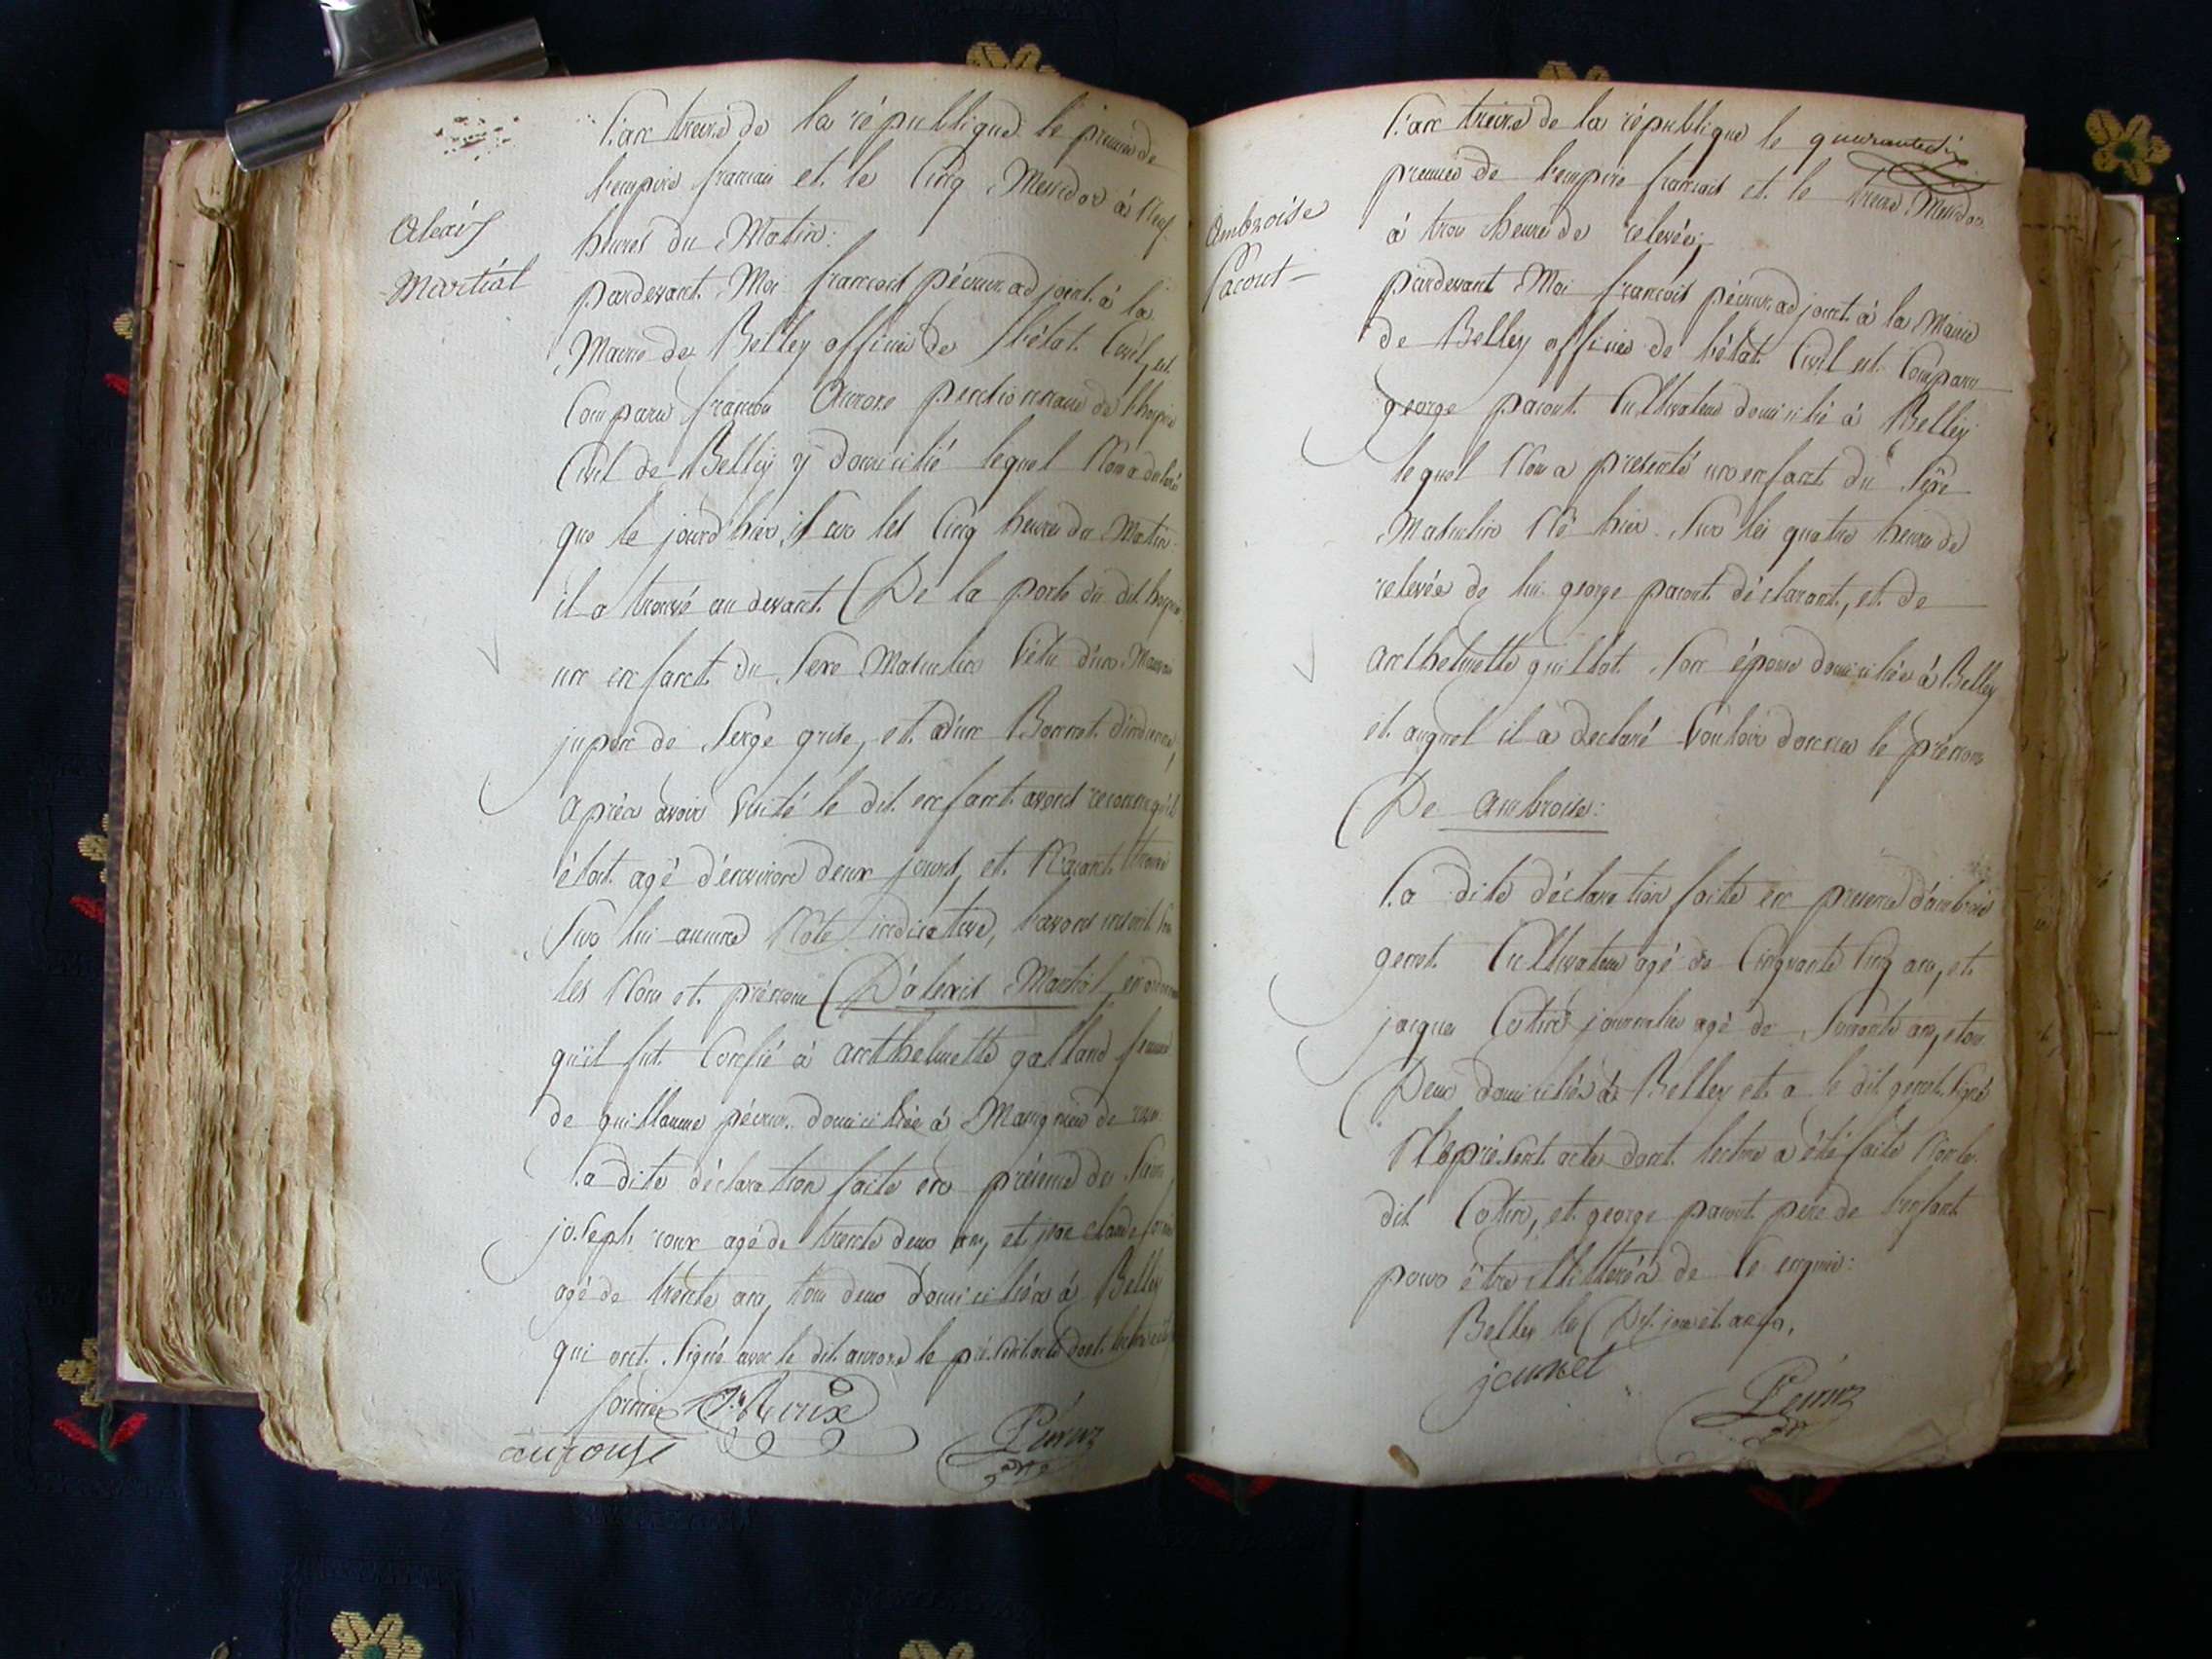 alexis
Martial
l'an treize de la république le premier de
l'empire francais et le Cinq Messidor à Neuf
heures du Matin:
pardevant Moi francois pécour adjoint à la
Mairie de Belley officier de l'état Civil, est
Comparu francois aurore pensionnaire de l'hospice
Civil de Belley y domicilié lequel Nous a déclaré
que le jourd'hier, sur les Cinq heures du Matin
il a trouvé au devant De la porte du dit hospice
un enfant du Sexe Masculin Vetu d'un Mauvais
jupon de Serge grise, et d'un Bonnet d'indienne,
après avoir visité le dit enfant avons reconnu qu'il
était agé d'environ deux jours, et N'ayant trouvé
Sur lui aucune Note indicative, l'avons inscrit sous
les Nom et prénom D'alexis Martial,
qu'il fut Confié à anthelmette galland femme
de guillaume pécour domiciliée à
la dite déclaration faite en présence de
joseph roux agé de trente deux ans, et jean claude
agé de trente ans, tous deux domiciliés à Belley
qui ont Signé avec le dit aurore le présent acte dont lecture
fornier Jh Roux
Pécour
Ambroise
Pacout
l'an treize de la république le
premier de l'empire francais et le treize Messidor
à trois heures de relevée,
pardevant Moi francois pécour adjoint à la Mairie
de Belley officier de l'état Civil est Comparu
george pacout Cultivateur domicilié à Belley
lequel Nous a présenté un enfant du Sexe
Masculin Né hier Sur les quatre heures de
relevée de lui george pacout déclarant, et de
anthelmette guillot Son épouse domiciliée à Belley
et auquel il a déclaré Vouloir donner le prénom
De ambroise:
la dite déclaration faite en présence d'ambroise
genet Cultivateur agé de Cinquante Cinq ans, et
jacques Cotin journalier agé de Soixante ans, tous
Deux domiciliés à Belley et a le dit genet Signé
le présent acte dont lecture a été faite Non le
dit Cotin, et george pacout père de l'enfant
pour être illitterés de ce enquis:
Belley les Dit jour et an,
Pécour